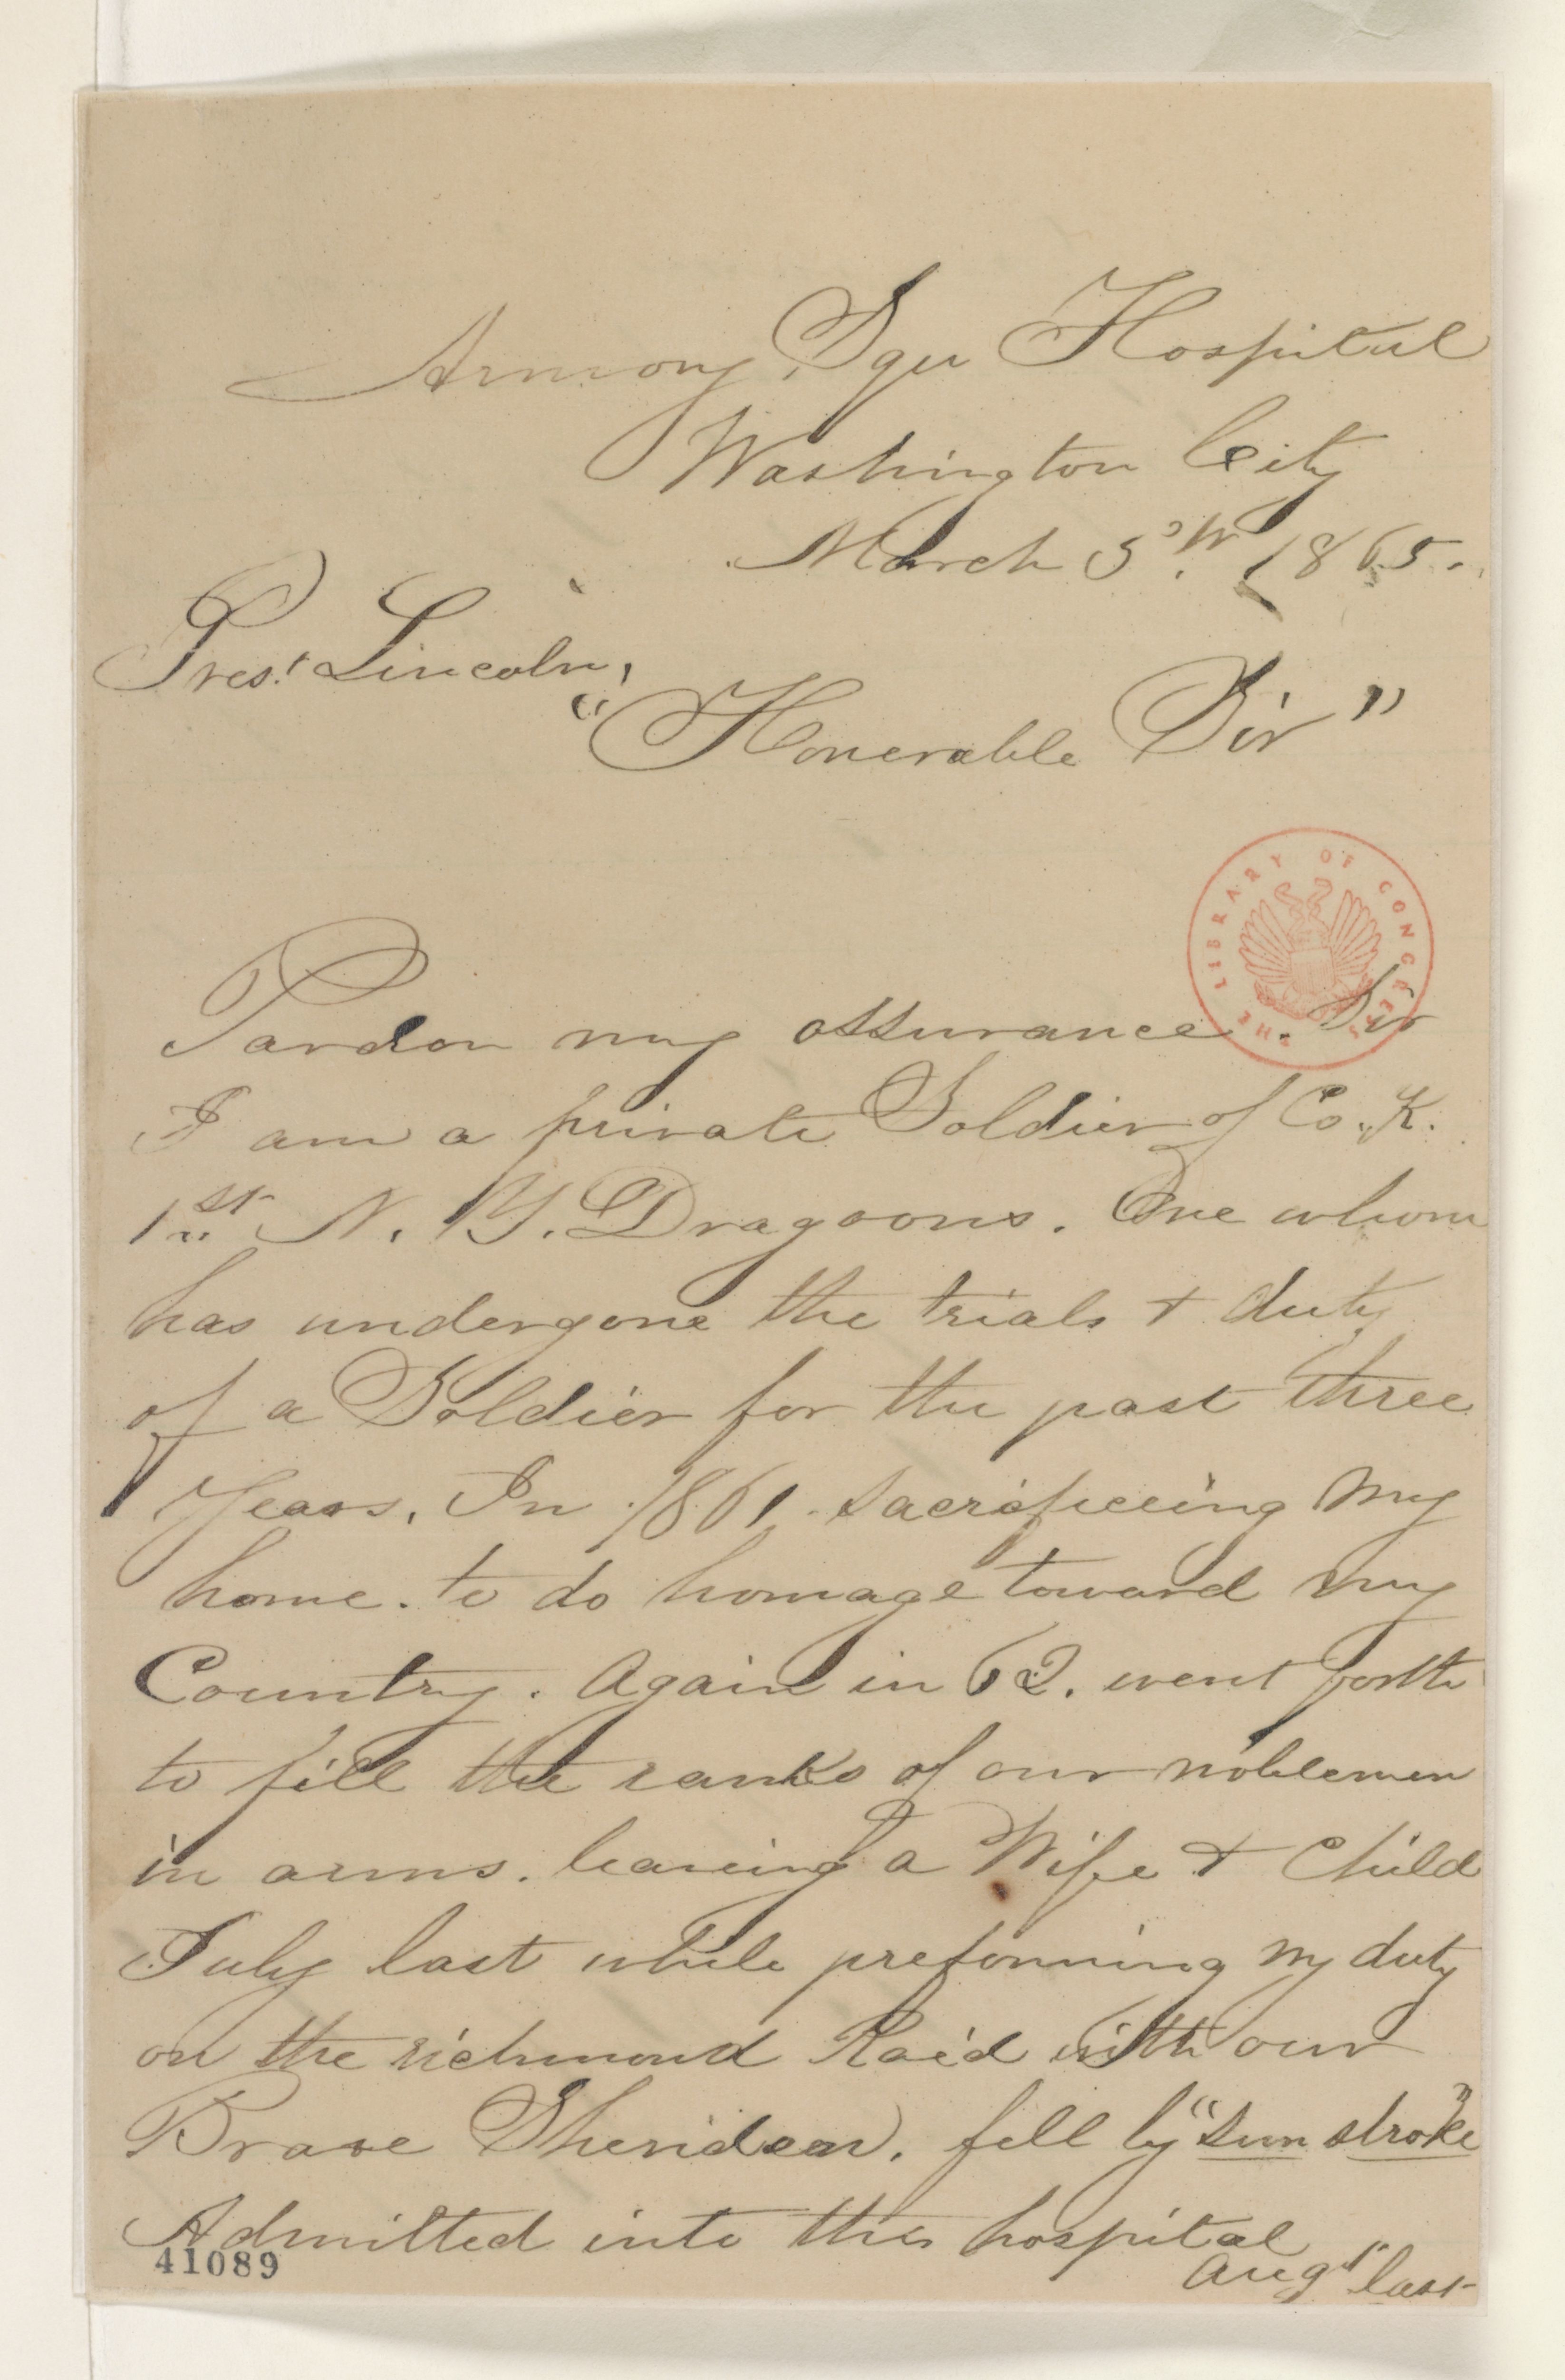 Armory Squ Hospital
Washington City
March 5th. 1865.
Prest. Lincoln,
"Honerable Sir"
THE LIBRARY OF CONGRESS
Pardon my assurance. Sir
I am a private Soldier of Co. K.
1st N. Y. Dragoons. One whom
has undergone the trials & duty
of a Soldier for the past three
Years. In 1861. sacrificeing my
home. to do homage toward my
Country. Again in 62. went forth
to fill the ranks of our noblemen
in arms. leaveing a Wife & Child
July last while preforming my duty
on the richmond Raid with our
Brave Sheridan. fell by "sun stroke"
Admitted into this hospital
Augst last
41089